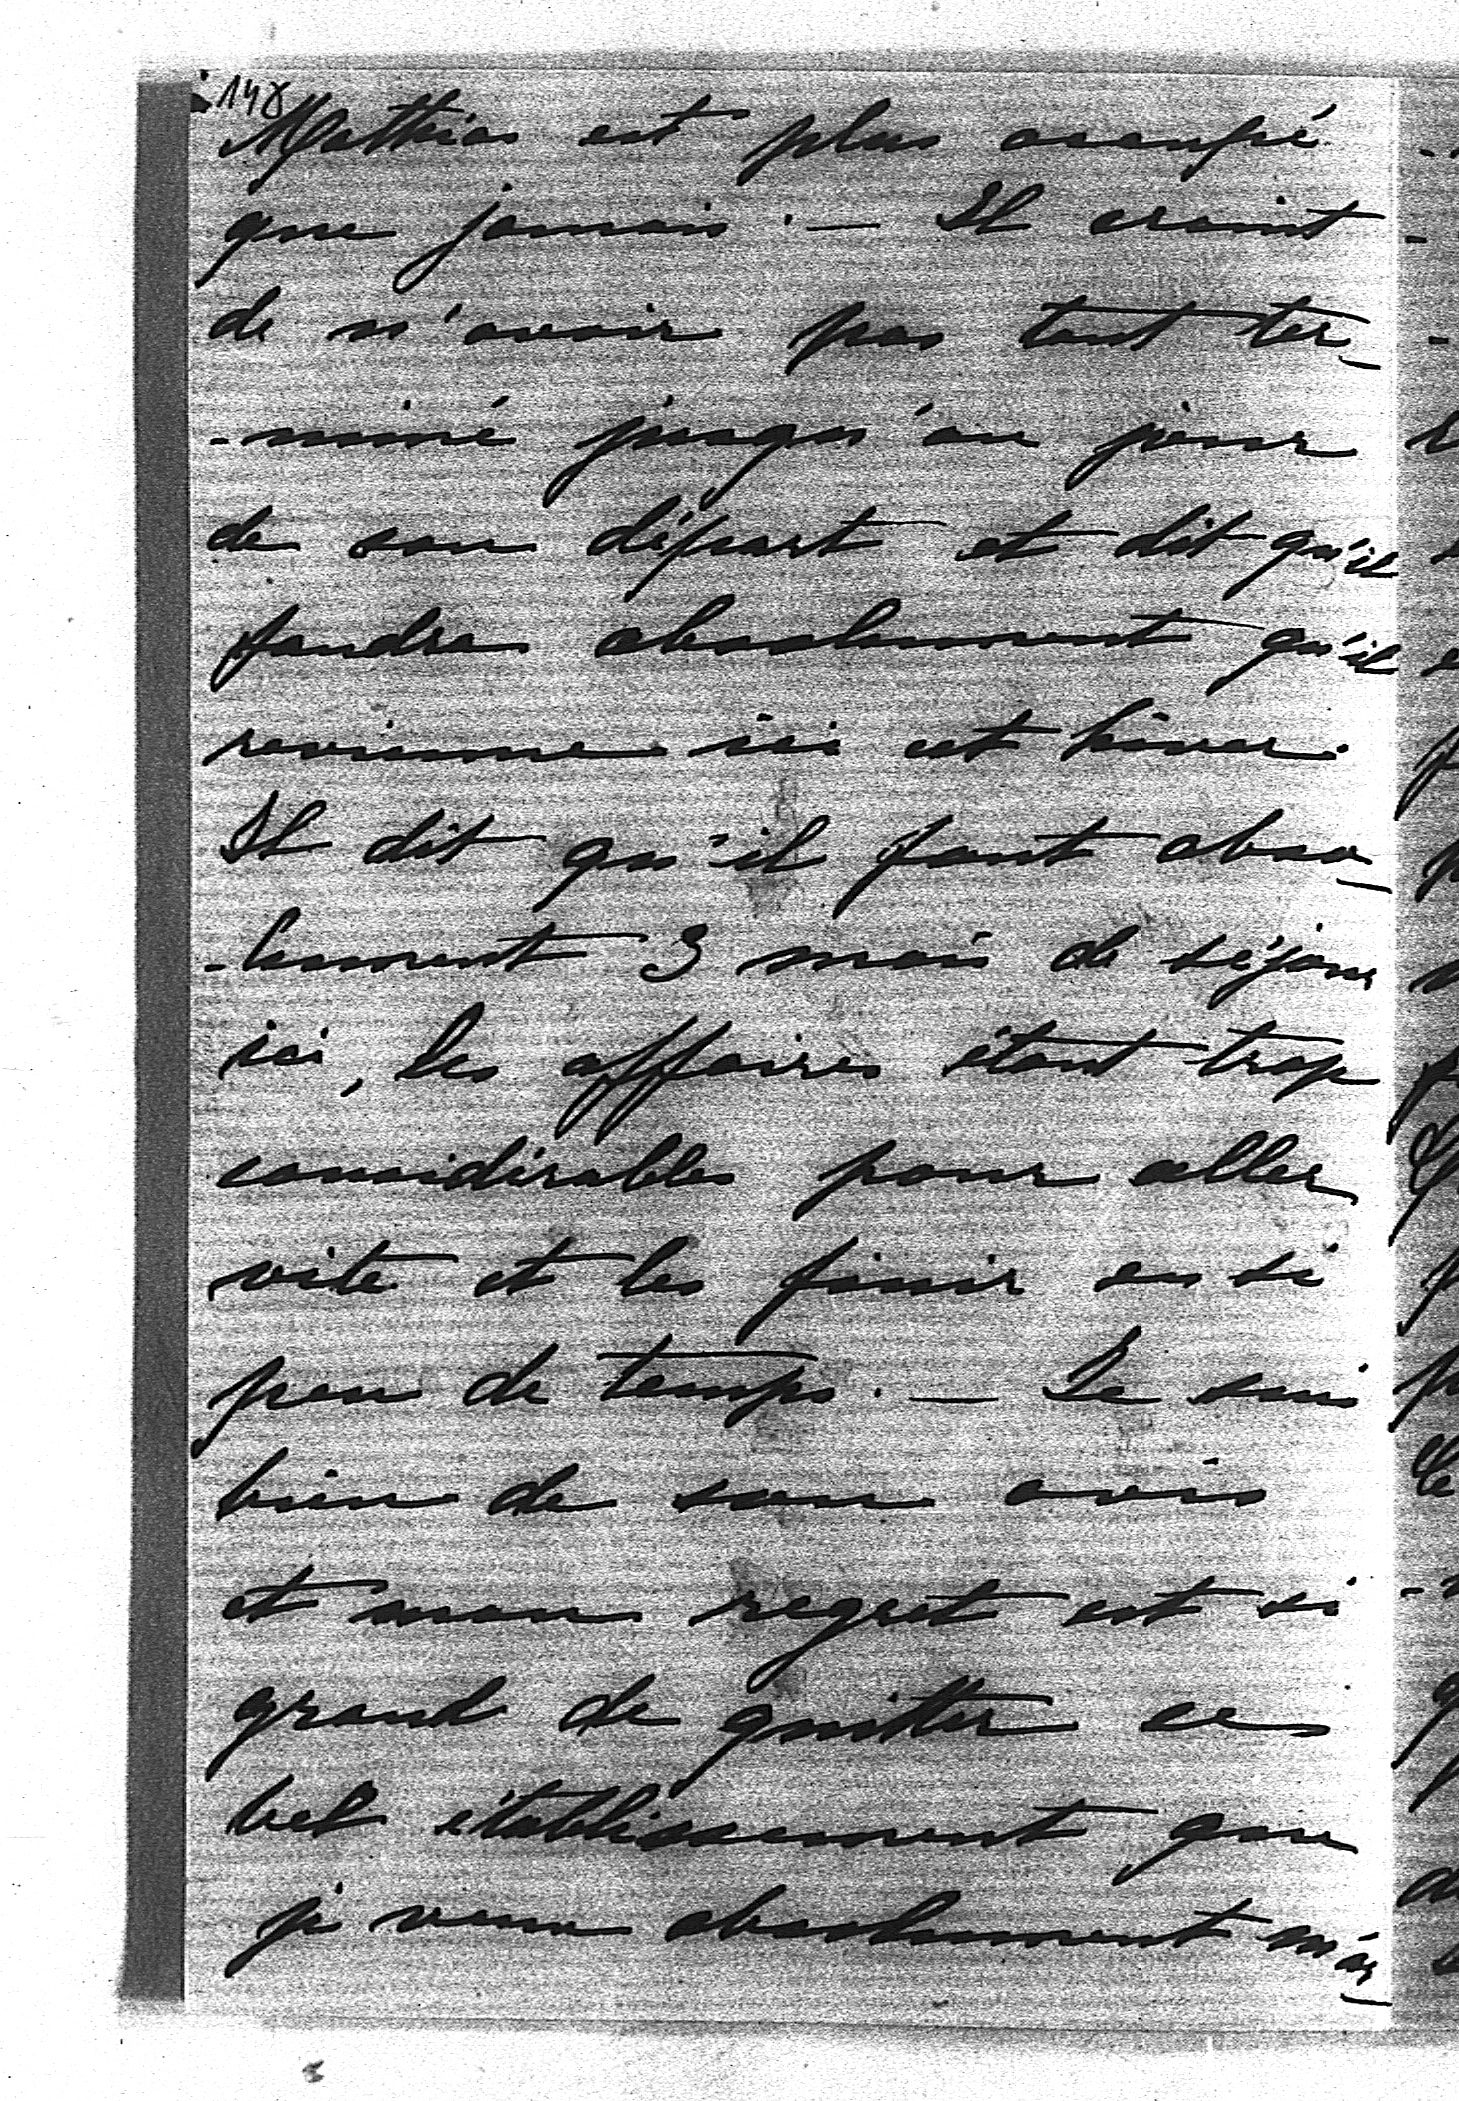 148
Mathias est plus occupé
que jamais. — Il craint
de n'avoir pas tout ter-
-miné jusqu'au jour
de son départ et dit qu'il
faudra absolument qu'il
revienne ici cet hiver.
Il dit qu'il faut abso-
-lument 3 mois de séjour
ici, les affaires étant trop
considérables pour aller
vite et les finir en si
peu de temps. — Je suis
bien de son avis
et mon regret est si
grand de quitter ce
bel établissement que
je veux absolument m'ar-